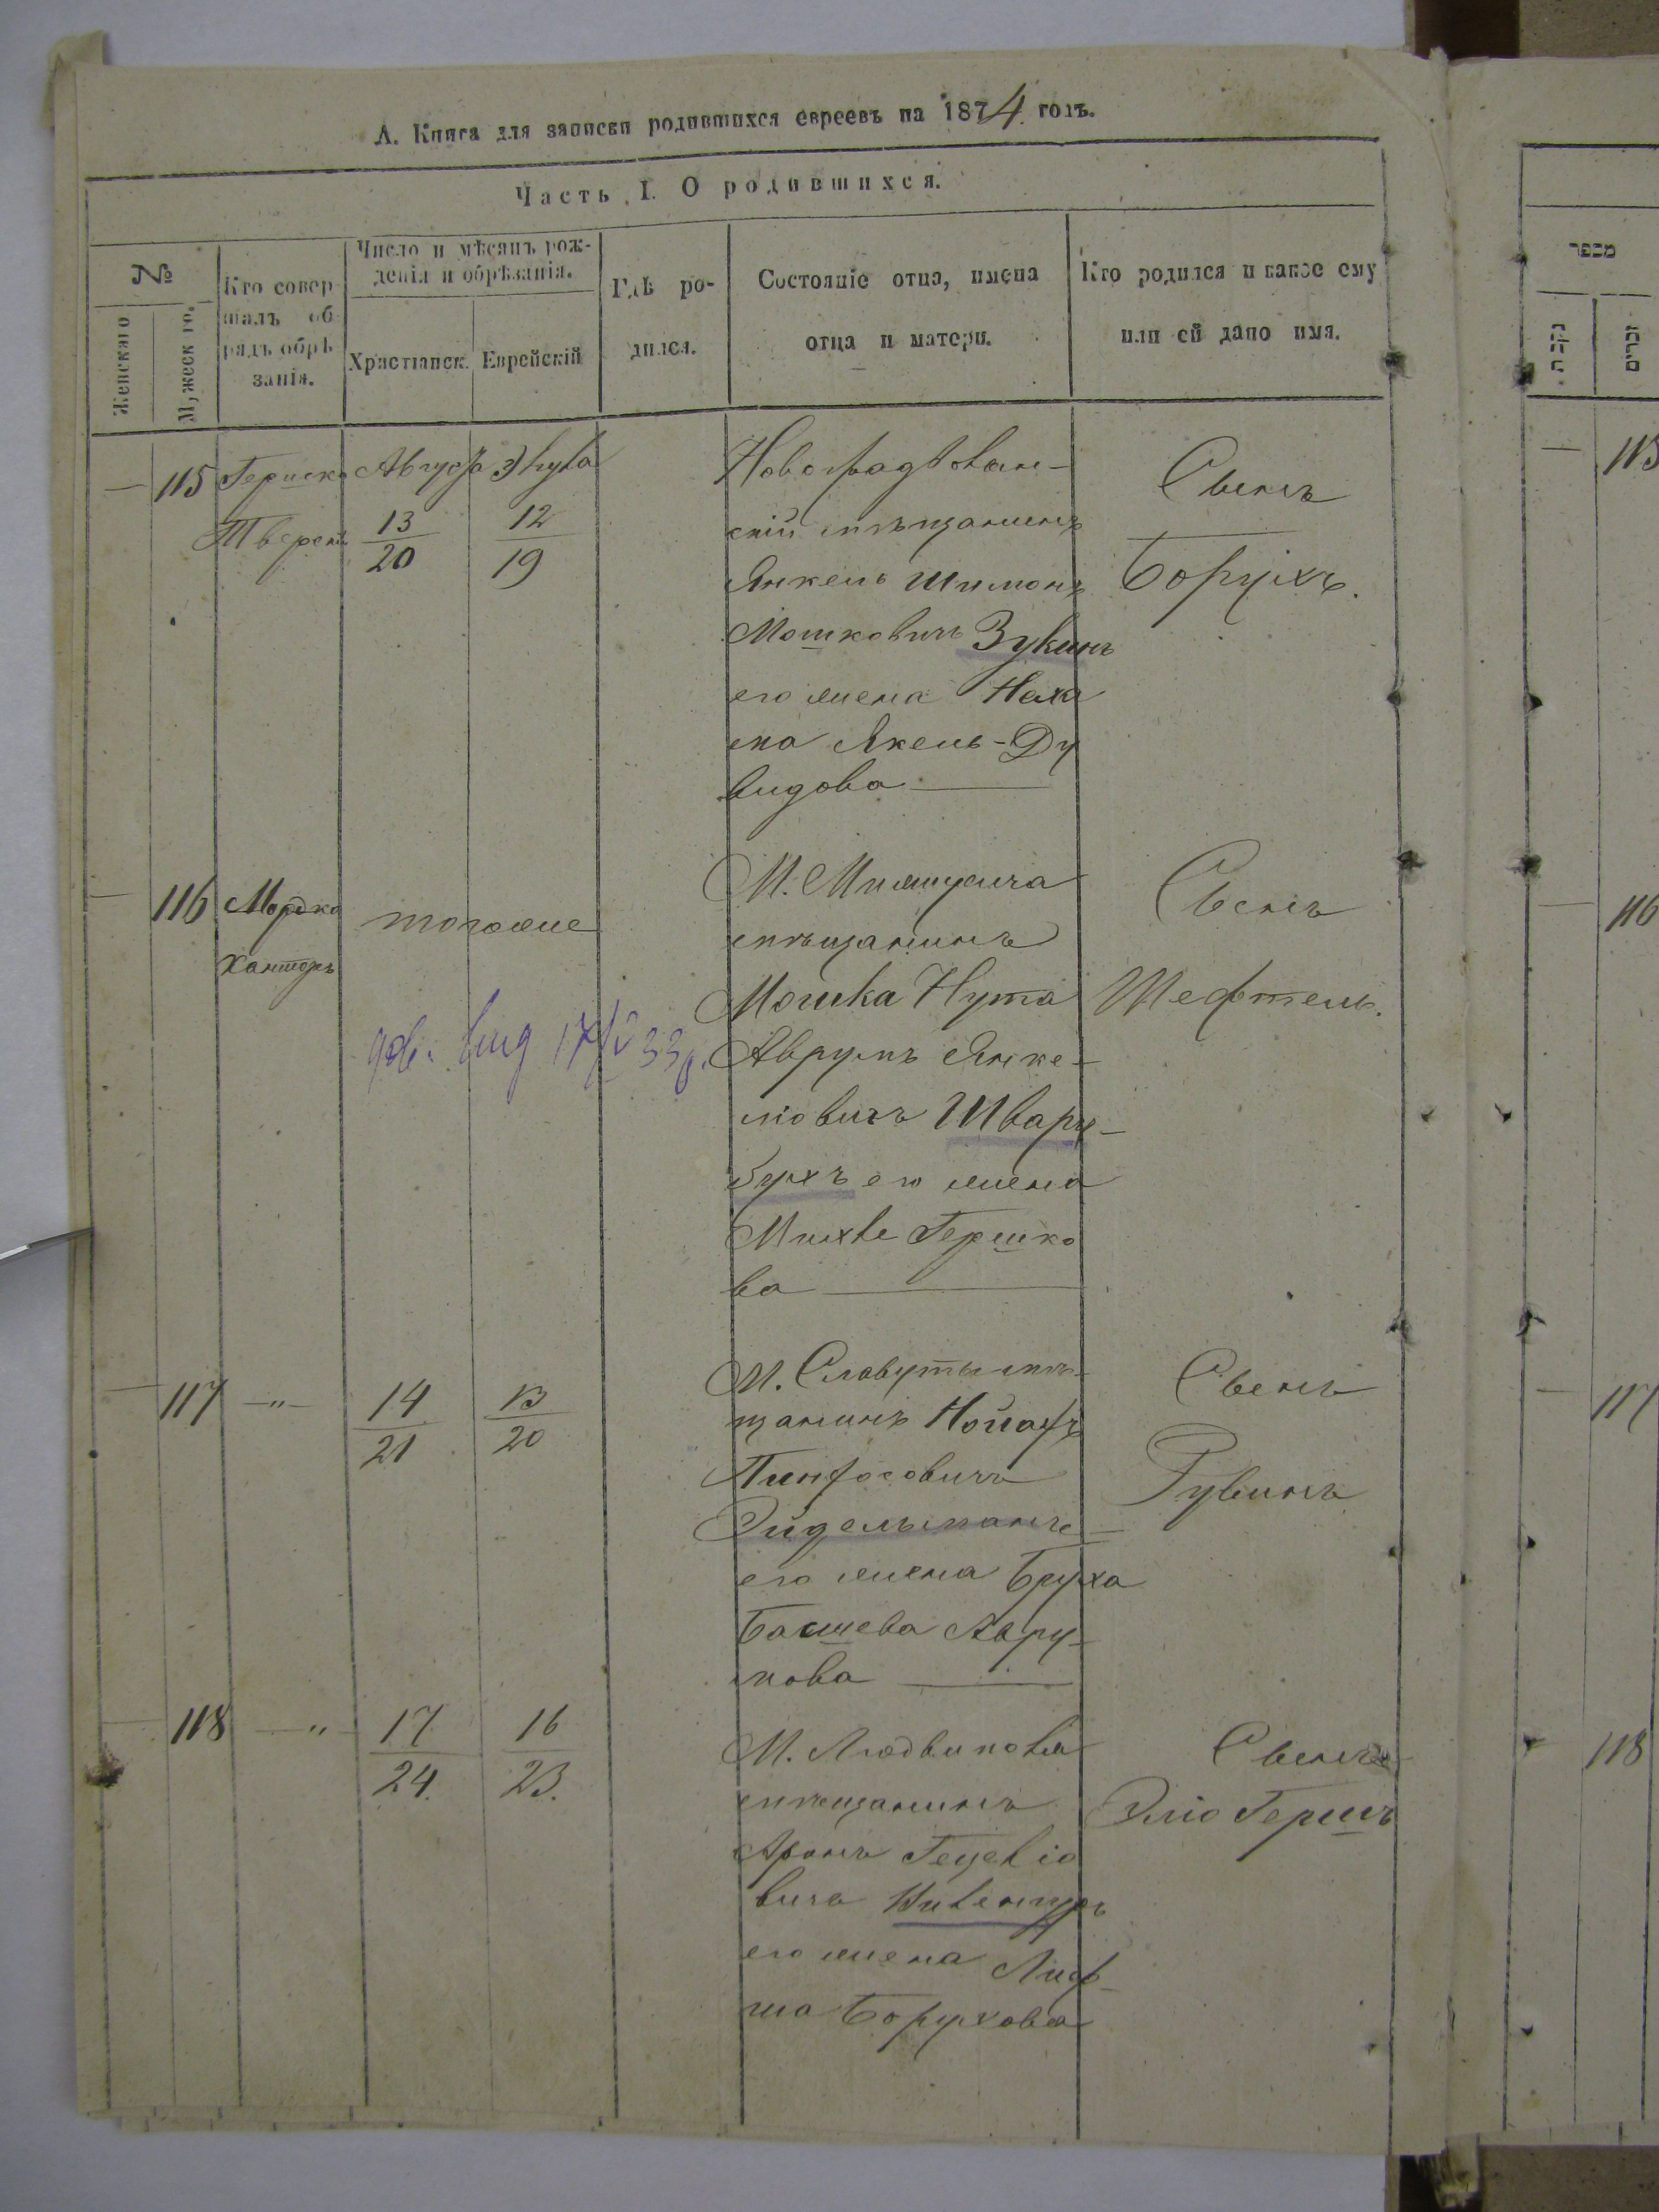 А. Книга для записки родившихся евреевъ на 1874 годъ.
Часть I. О родившихся.
№
Женскаго
Мужеск го.
Кто совер
шалъ об
рядъ обрѣ
занія.
Число и мѣсяцъ рож-
денія и обрѣзанія.
Христіанск.
Еврейскій
Гдѣ ро-
дился.
Состояніе отца, имена
отца и матери.
Кто родился и какое ему
или ей дано имя.
— 115 Гершко Августа Элула
13 12
20 19
Новоградволын-
скій мѣщанинъ
Янкель Шимонъ
Мошковичъ Зукинъ
его жена Неха
ма Якель-Ду
видова
Сынъ
Борухъ.
— 116 Мордко
Хантеръ
тогоже
М.
мѣщанинъ
Мошка Нута
Аврумъ Янке-
ловичъ Шварц-
бухъ его жена
Михле Гершко
ва
Сынъ
Шефтель.
17/V 33
— 117 —"—
14 13
21 20
М. Славуты мѣ-
щанинъ
Пинхосовичъ
Эйдельманъ
его жена Бруха
Басшева Авру-
мова
Сынъ
Рувинъ
— 118 —"—
17 16
24. 23.
М. Людвиполя
мѣщанинъ
Аронъ
вичъ
его жена Лиф-
ша Борухова
Сынъ
Эліо Гершъ
מספר
נקבות
זכרים
— 115
— 116
— 117
118